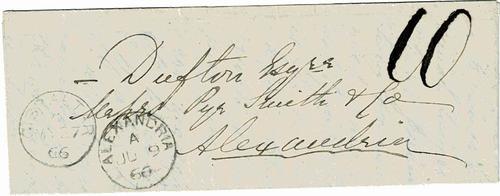 10
— Dufton Esqre
Messrs Pyr Smith & Co
Alexandria
GIBRALTAR
27
66
ALEXANDRIA
A
JU 9
66